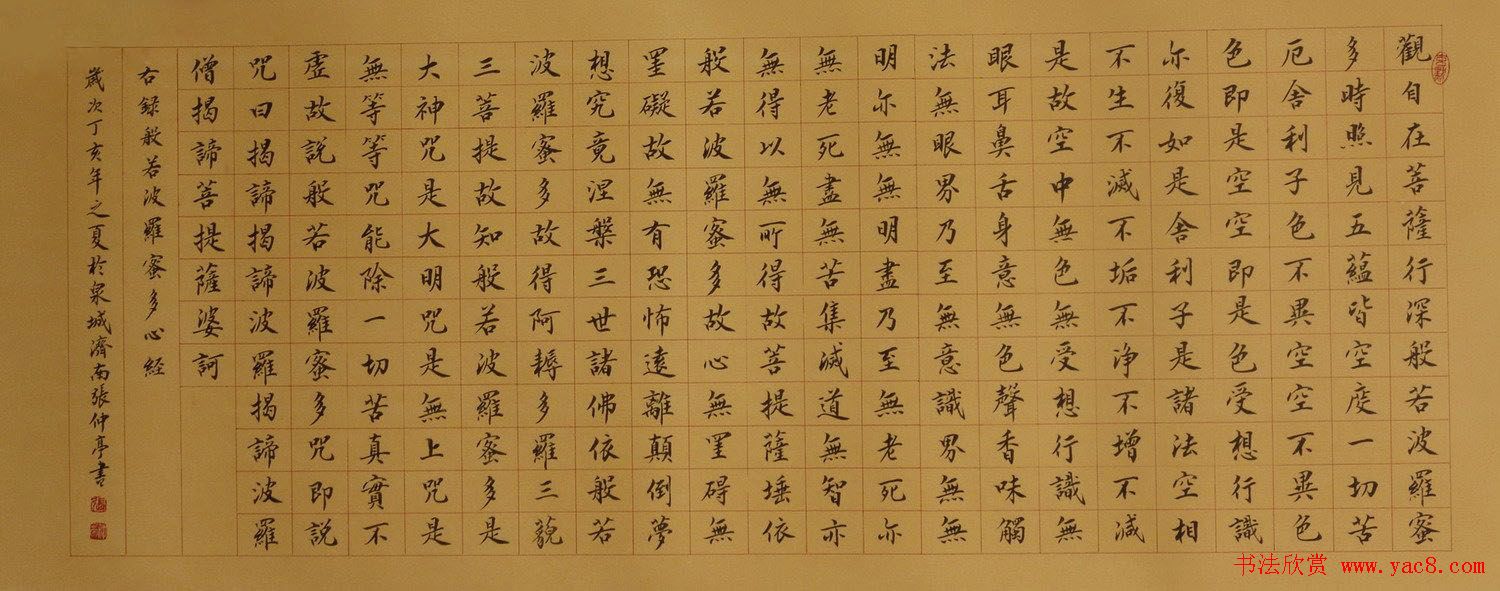 觀自在菩薩行深般若波羅蜜
多時照見五蘊皆空度一切苦
厄舍利子色不異空空不異色
色即是空空即是色受想行識
亦復如是舍利子是諸法空相
不生不滅不垢不淨不增不減
是故空中無色無受想行識無
眼耳鼻舌身意無色聲香味觸
法無眼界乃至無意識界無無
明亦無無明盡乃至無老死亦
無老死盡無苦集滅道無智亦
無得以無所得故菩提薩埵依
般若波羅蜜多故心無罣碍無
罣礙故無有恐怖遠離顛倒夢
想究竟涅槃三世諸佛依般若
波羅蜜多故得阿耨多羅三藐
三菩提故知般若波羅蜜多是
大神咒是大明咒是無上咒是
無等等咒能除一切苦真實不
虛故說般若波羅蜜多咒即說
咒曰揭諦揭諦波羅揭諦波羅
僧揭諦菩提薩婆訶
右録般若波羅蜜多心経
歲次丁亥年之夏於泉城濟南張仲亭書
书法欣赏 www.yac8.com